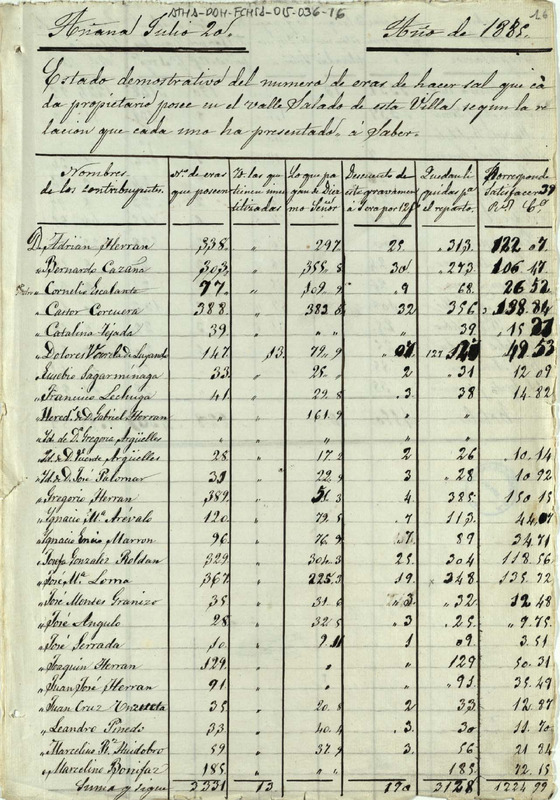 ATHA-DOH-FCHSA-015-036-16
16
Añana Julio 20. Año de 1885.
Estado demostrativo del numero de eras de hacer sal que ca
da propietario posee en el valle Salado de esta Villa segun la re
lacion que cada uno ha presentado á Saber.
Nombres de los contribuyentes. Nº. de eras que poseen Id. las que tienen inutilizadas Lo que pagan de Diezmo Señor Descuento de este gravamen á 1 era por 12 Quedan liquidas pª el reparto. Corresponde Satisfacer 39 Rs. Cs.
D. Adrian Herran 338. " 297 25 313. 122 07
" Bernardo Cazaña 303, " 355 8 30 273 106 47
" Cornelio Escalante 77. " 109 9 9 68. 26 52
" Castor Corcuera 388 " 383 8 32 356 138.84
" Catalina Tejada 39 " " " 39 15 21
" Dolores Varela de Luyando 147. 13. 79. 9 07 127 49 53
" Eusebio Sagarminaga 33. " 25. 2 31 12 09
" Francisco Lechuga 41 " 29. 8 3 38 14.82
" Hered.s de D. Gabriel Herran " " 161. 9 " "
" Id. de Dª Gregoria Argüelles " " " " "
" Id. de D. Vicente Argüelles 28 " 17. 2 2 26 10.14
" Id. de D. José Palomar 31 " 22. 9 3 28 10 92
" Gregorio Herran 389. " 51 3 4 385 150 15
" Ignacio Mª Arévalo 120. " 79. 5 7 113. 44,07
" Ignacio Marron 96. " 76. 9 7 89 34 71
" Josefa Gonzalez Roldan 329. " 304. 3 25. 304 118.56
" José Mª Loma 367. " 225 3 19 348 135.72
" José Montes Granizo 35 " 31. 6 3 32 12 48
" José Angulo 28 " 32 5 3 25 9.75
" José Serrada 10. " 9 11 1 09. 3.51
" Joaquin Herran 129. " " " 129 50. 31
" Juan José Herran 91. " " " 91 35.49
" Juan Cruz 35 " 20. 8 2 33 12.87
" Leandro Pinedo 33. " 40. 4 3. 30 11. 70
" Marcelino Rz Huidobro 59 " 37. 9 3. 56 21 84
" Marcelino Bonifaz 185 " " " 185. 72 15
Suma y sigue 3331 13 190 3128 1224 99